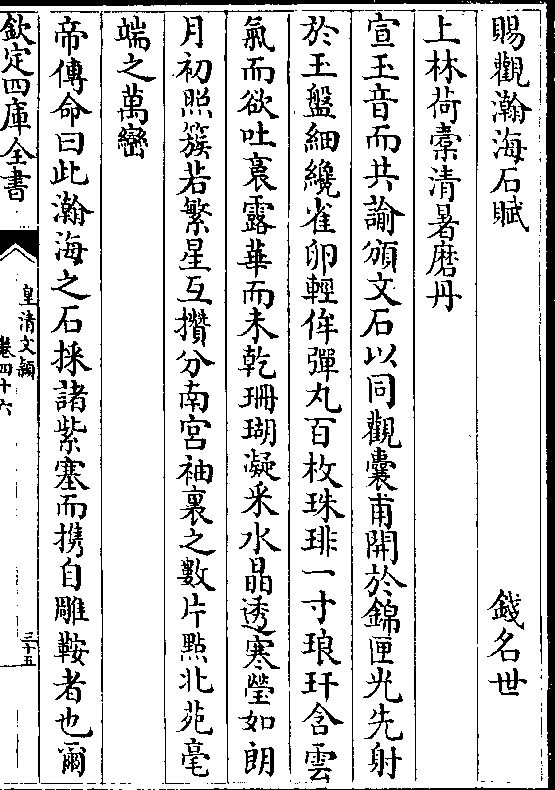 賜觀瀚海石賦　錢名世
上林荷橐清暑磨丹
宣玉音而共諭頒文石以同觀囊甫開於錦匣光先射
於玉盤細纔雀卵輕侔彈丸百枚珠琲一寸琅玕含雲
氣而欲吐裛露華而未乾珊瑚凝采水晶透寒瑩如朗
月初照簇若繁星互攢分南宮袖裏之數片點北苑毫
端之萬巒
帝傳命曰此瀚海之石採諸紫塞而携自雕鞍者也爾
欽定四庫全書
皇清文穎
卷四十六
三十五